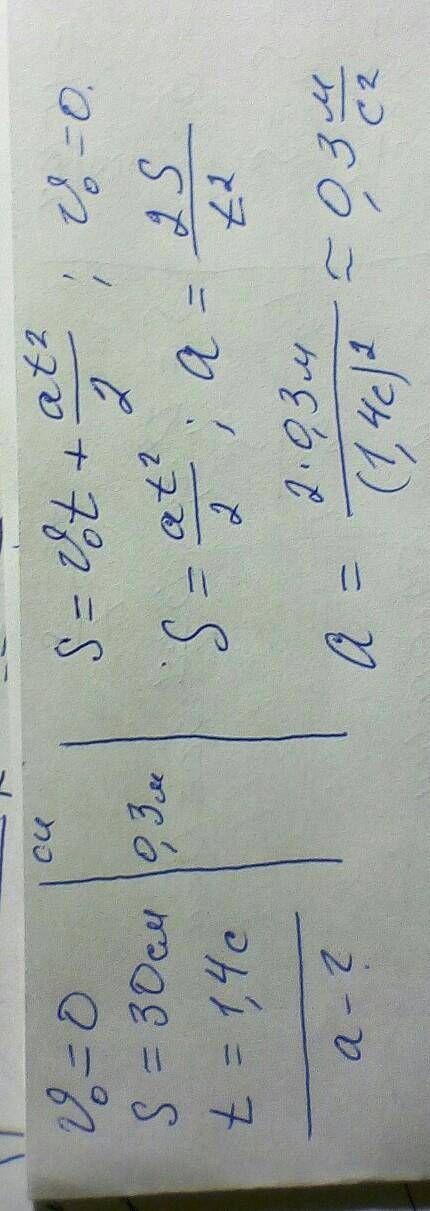 υ₀=0
S=30см
t=1,4с
a-?
си
0,3м
S=υ₀t+at²/2; υ₀=0.
S=at²/2; a=2S/t²
a=2·0,3м/(1,4с)²≈0,3м/с²